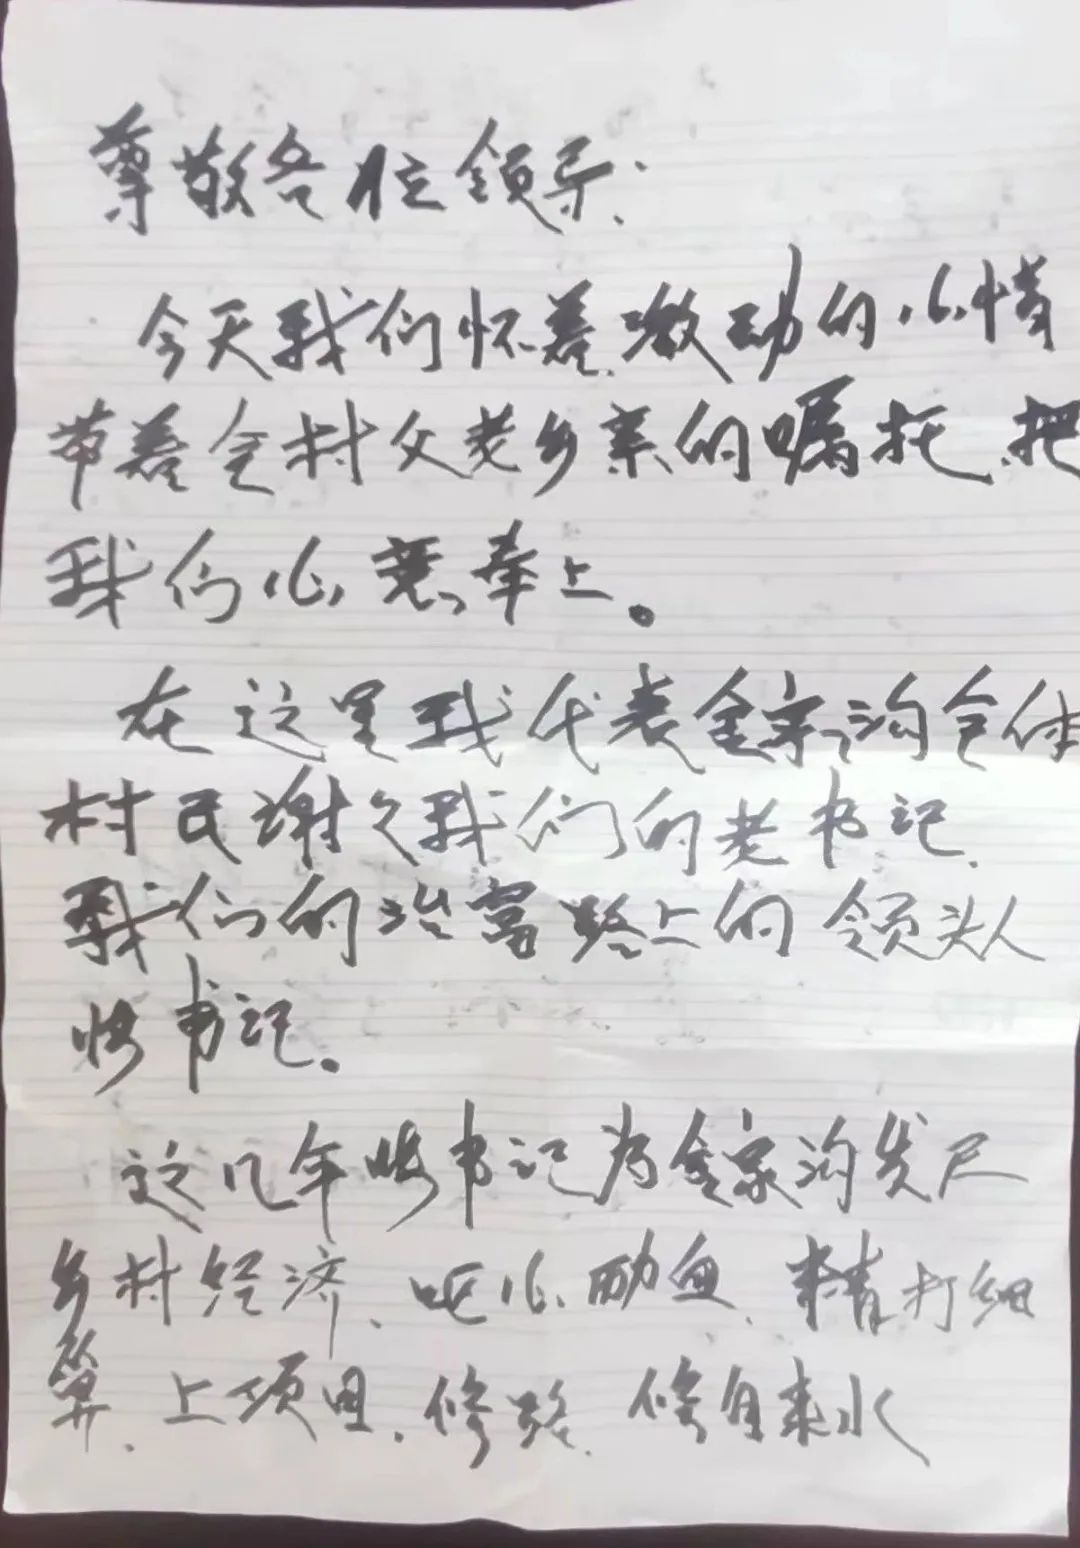 尊敬各位领导:
今天我们怀着激动的心情
带着全村父老乡亲的嘱托、把
我们心意奉上。
在这里我代表金家沟全体
村民谢谢我们的老书记、
我们的治富路上的领头人
书记。
这几年书记为金家沟发展
乡村经济、呕心励血、精打细
算、上项目、修路、修自来水